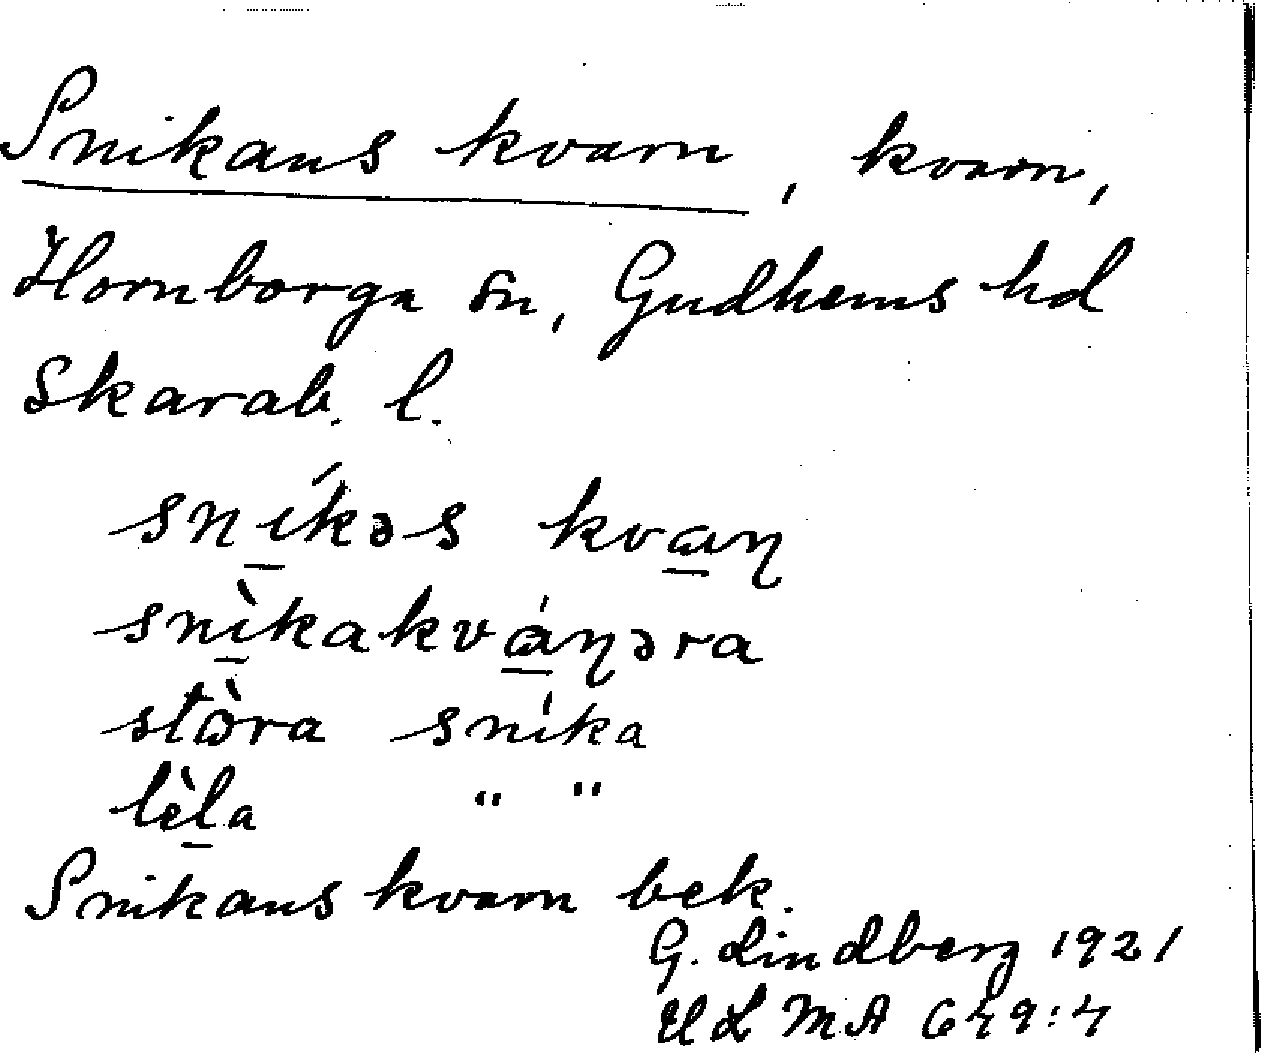 Snikans kvarn, kvarn,
Hornborga sn, Gudhems hd
Skarab. l.
sníkəs kvaɳ
snìkakváɳəra
stòra sníka
lèla " "
Snikans kvarn bek.
G. Lindberg 1921
ULMA 649:4